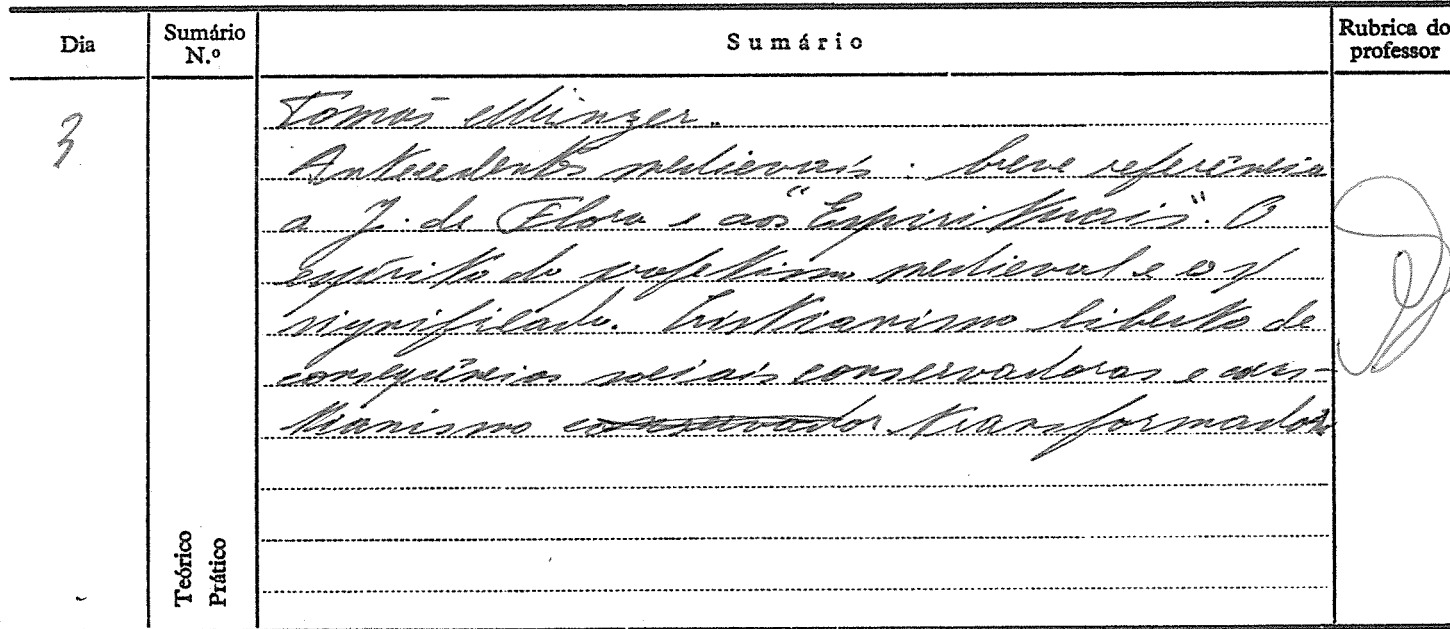 Dia
Sumário N.º
Sumário
Rubrica do professor
3
Tomás Münzer.
Antecedentes medievais: breve referência
a J. de Flora e aos "Espirituais". O
espírito do profetismo medieval e o s/
significado. Cristianismo liberto de
conseqüências sociais conservadoras e cris-
tianismo conservador transformador
Teórico
Prático